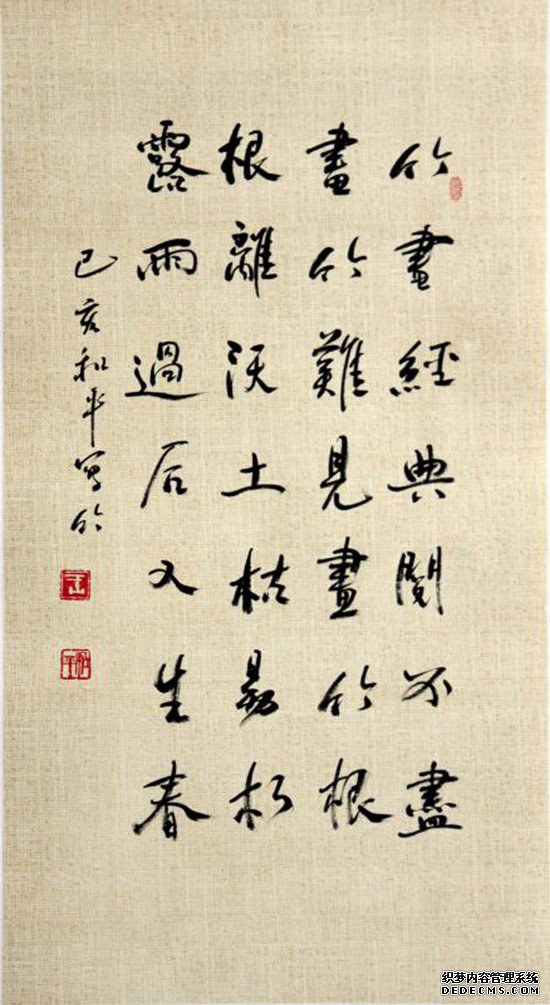 竹畫經典閱不盡
畫竹難見畫竹根
根離沃土枯易朽
露雨過后又生春
己亥和平寫竹
织梦内容管理系统
DEDECMS.COM